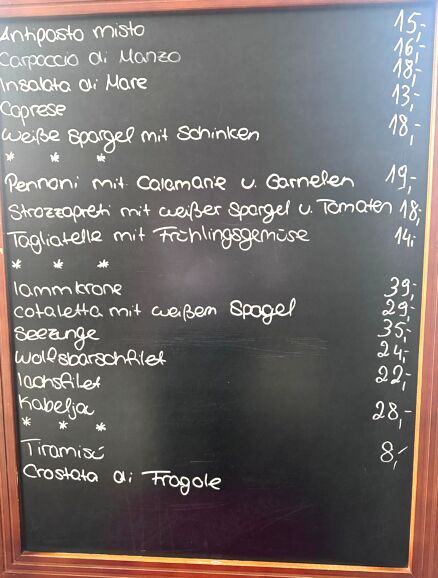 Antipasto misto 15,-
Carpaccio di Manzo 16,-
Insalata di Mare 18,-
Caprese 13,-
weiße Spargel mit Schinken 18,-
* * *
Pennoni mit Calamarie u. Garnelen 19,-
Strozzapreti mit weißer Spargel u. Tomaten 18,-
Tagliatelle mit Frühlingsgemüse 14,-
* * *
lammkrone 39,-
cotaletta mit weißem Spagel 29,-
Seezunge 35,-
Wolfsbarschfilet 24,-
lachsfilet 22,-
Kabelja 28,-
* * *
Tiramisú 8,-
Crostata di Fragole